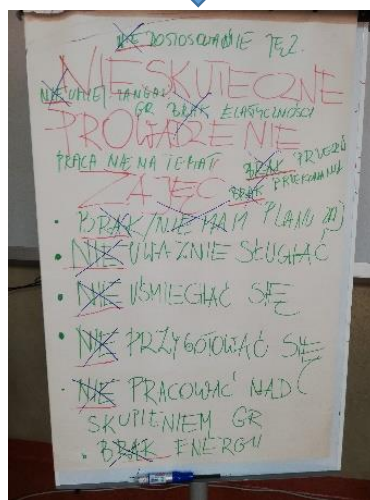 NIE DOSTOSOWANIE JĘZ.
NIESKUTECZNE
NIE UMIEJ. ZAANGAŻ
GR BRAK ELASTYCZNOŚCI
PROWADZENIE
PRACA NIE NA TEMAT
BRAK
ZAJĘĆ BRAK PRZEKONANIA
• BRAK/NIE MAM PLANU ZAJ
• NIE UWAŻNIE SŁUCHAĆ
• NIE UŚMIECHAĆ SIĘ
• NIE PRZYGOTOWAĆ SIĘ
• NIE PRACOWAĆ NAD
SKUPIENIEM GR
• BRAK ENERGII